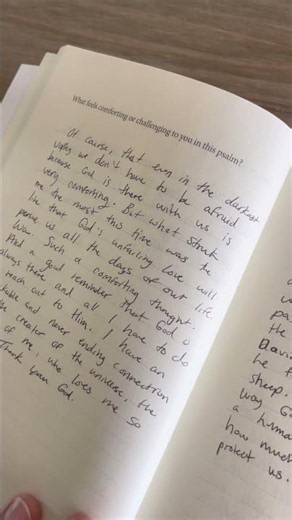 What feels comforting or challenging to you in this psalm?
Of course, that even in the darkest
valleys we don't have to be afraid
because God is there with us is
very comforting. But what struck
me the most this time was the
line that God's unfailing love will
pursue us all the days of our life.
Wow. Such a comforting thought.
And a good reminder that God is
always there and all I have to do
reach out to Him. I have an
table and never ending connection
creator of the universe, the
of me, who loves me so
Thank you God.
pa
the
Davi
he f
sheep.
way Go
a huma
how much
protect us.